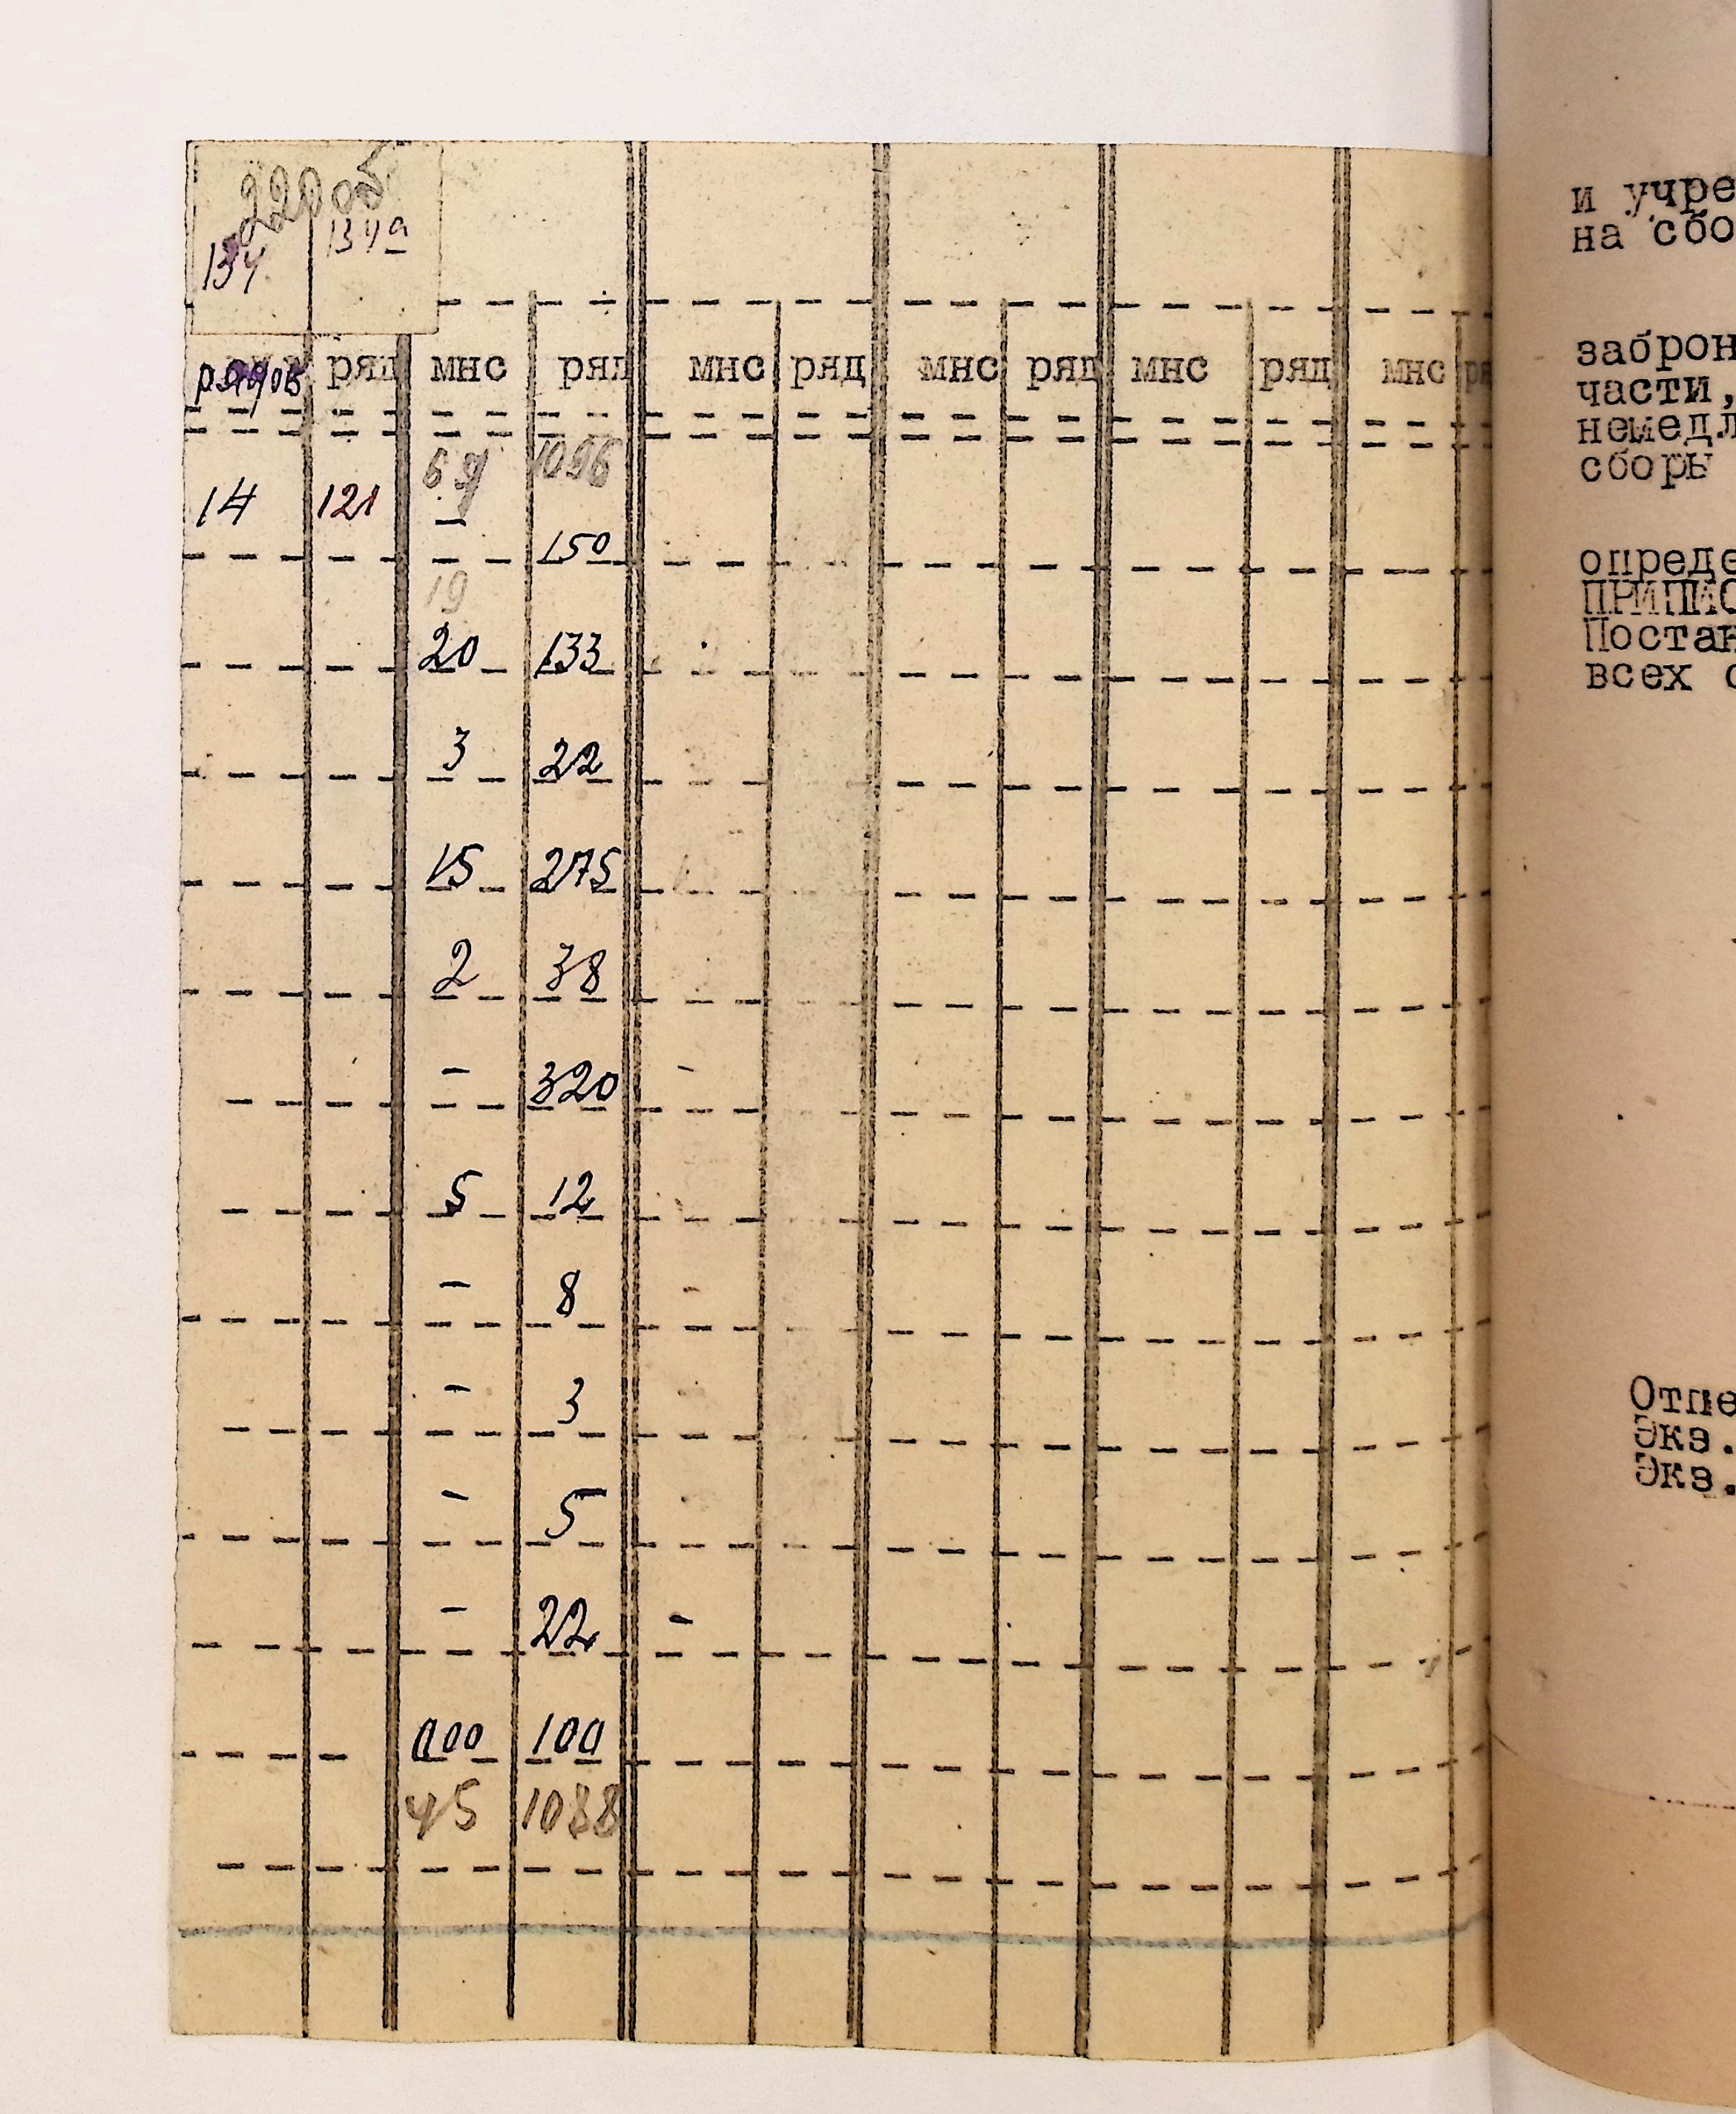 220об
134 134а
рядов ряд мнс ряд мнс ряд мнс ряд мнс ряд мнс
69 1096
14 121 –
150
19
20 133
3 22
15 275
2 38
– 320 –
5 12
– 8
– 3
– 5
– 22 –
100
45 1088
и учре
на сбо
заброн
части,
немедл
сборы
опреде
ПРИПИС
Постан
всех с
Отпе
Экз.
Экз.